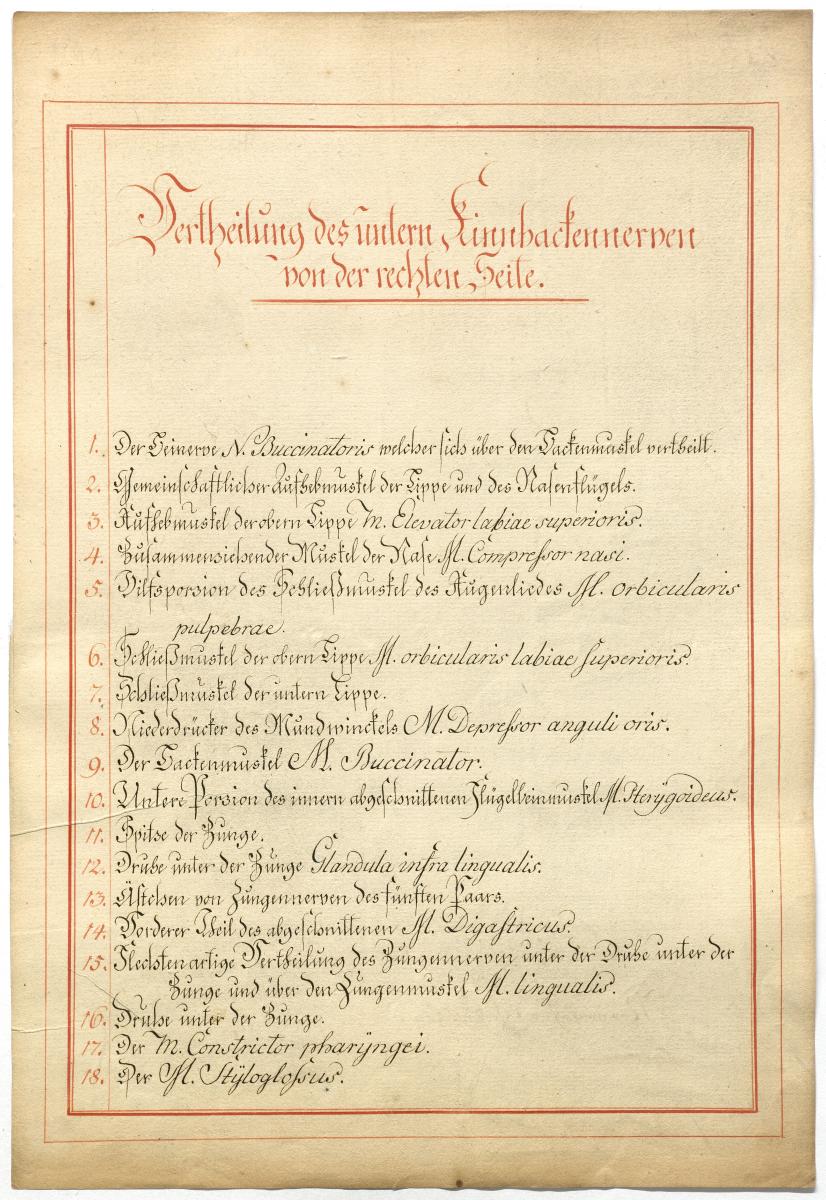 Vertheilung des untern Kinnbackennerven
von der rechten Seite.
1. Der Beinerve N. Buccinatoris welcher sich über den Backenmuskel vertheilt.
2. Gemeinschaftlicher Aufhebmuskel der Lippe und des Nasenflügels.
3. Aufhebmuskel der obern Lippe M. Elevator labiae superioris.
4. Zusammenziehender Muskel der Nase M. Compressor nasi.
5. des Schließmuskel des Augenliedes M. orbicularis
pulpebrae.
6. Schließmuskel der obern Lippe M. orbicularis labiae superioris.
7. Schließmuskel der untern Lippe.
8. Niederdrücker des Mundwinckels M. Depressor anguli oris.
9. Der Backenmuskel M. Buccinator.
10. Untere Porzion des innern abgeschnittenen Flügelbeinmuskel M. Pterÿgoideus.
11. Spitze der Zunge.
12. Druhse unter der Zunge Glandula infra lingualis.
13. Ästchen von Zungennerven des fünften Paars.
14. Vorderer Theil des abgeschnittenen M. Digastricus.
15. Flechtenartige Vertheilung des Zungennerven unter der Druhse unter der
Zunge und über den Zungenmuskel M. lingualis.
16. Druhse unter der Zunge.
17. Der M. Constrictor pharÿngei.
18. Der M. Stÿloglossus.